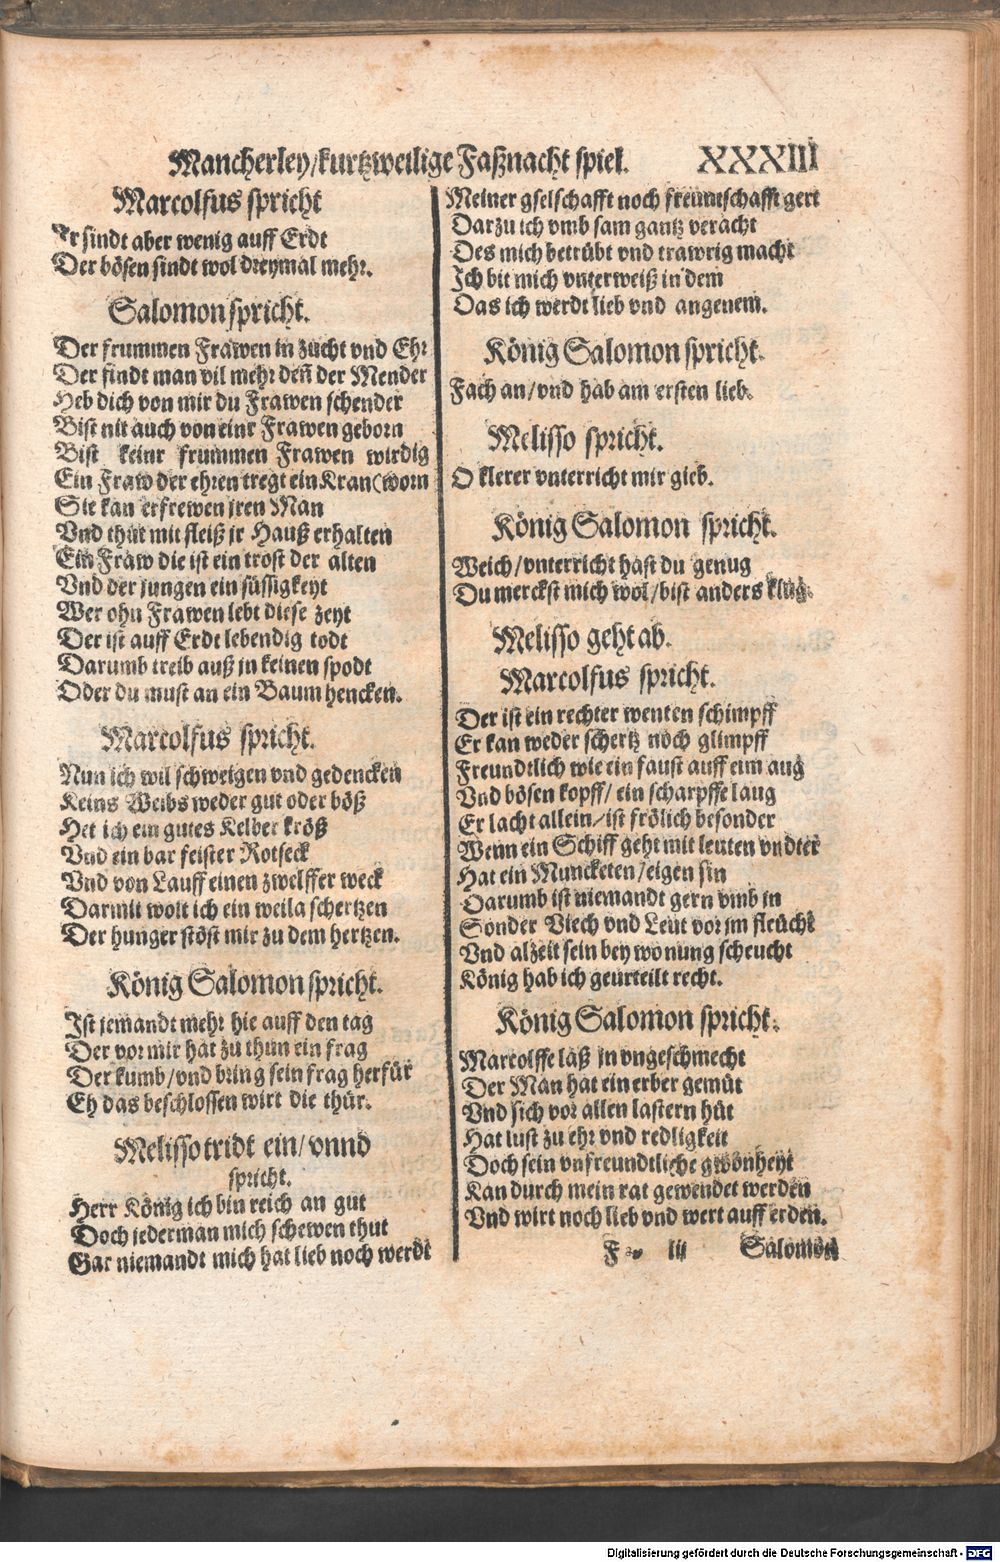 Mancherley/kurtzweilige Faßnacht spiel. XXXIII
Marcolfus spricht
Ir sindt aber wenig auff Erdt
Der bösen sindt wol dreymal mehr.
Salomon spricht.
Der frummen Frawen in zucht vnd Ehr
Der findt man vil mehr deñ der Mender
Heb dich von mir du Frawen schender
Bist nit auch von einr Frawen geborn
Bist keinr frummen Frawen wirdig
Ein Fraw der ehren tregt ein Kran (worn
Sie kan erfrewen jren Man
Vnd thut mit fleiß jr Hauß erhalten
Ein Fraw die ist ein trost der alten
Vnd der jungen ein süssigkeyt
Wer ohn Frawen lebt diese zeyt
Der ist auff Erdt lebendig todt
Darumb treib auß jn keinen spodt
Oder du must an ein Baum hencken.
Marcolfus spricht.
Nun ich wil schweigen vnd gedencken
Keins Weibs weder gut oder böß
Het ich ein gutes Kelber kröß
Vnd ein bar feister Rotseck
Vnd von Lauff einen zwelffer weck
Darmit wolt ich ein weil a schertzen
Der hunger stöst mir zu dem hertzen.
König Salomon spricht.
Ist jemandt mehr hie auff den tag
Der vor mir hat zu thun ein frag
Der kumb/vnd bring sein frag herfür
Eh das beschlossen wirt die thür.
Melisso tridt ein/vnnd
spricht.
Herr König ich bin reich an gut
Doch jederman mich schewen thut
Gar niemandt mich hat lieb noch werdt
Meiner gselschafft noch freuntschafft gert
Darzu ich vmb sam gantz veracht
Des mich betrübt vnd trawrig macht
Ich bit mich vnterweiß in dem
Das ich werdt lieb vnd angenem.
König Salomon spricht.
Fach an/vnd hab am ersten lieb.
Melisso spricht.
O klerer vnterricht mir gieb.
König Salomon spricht.
Weich/vnterricht hast du genug
Du merckst mich wol/bist anders klug.
Melisso geht ab.
Marcolfus spricht.
Der ist ein rechter wenten schimpff
Er kan weder schertz noch glimpff
Freundtlich wie ein faust auff eim aug
Vnd bösen kopff/ein scharpffe laug
Er lacht allein/ist frölich besonder
Wenn ein Schiff geht mit leuten vndter
Hat ein Muncketen/eigen sin
Darumb ist niemandt gern vmb jn
Sonder Viech vnd Leut vor jm fleücht
Vnd alzeit sein bey wonung scheucht
König hab ich geurteilt recht.
König Salomon spricht.
Marcolffe laß jn vngeschmecht
Der Man hat ein erber gemüt
Vnd sich vor allen lastern hüt
Hat lust zu ehr vnd redligkeit
Doch sein vnfreundtliche gwonheyt
Kan durch mein rat gewendet werden
Vnd wirt noch lieb vnd wert auff erden.
iii Salomon
Digitalisierung gefördert durch die Deutsche Forschungsgemeinschaft - DFG